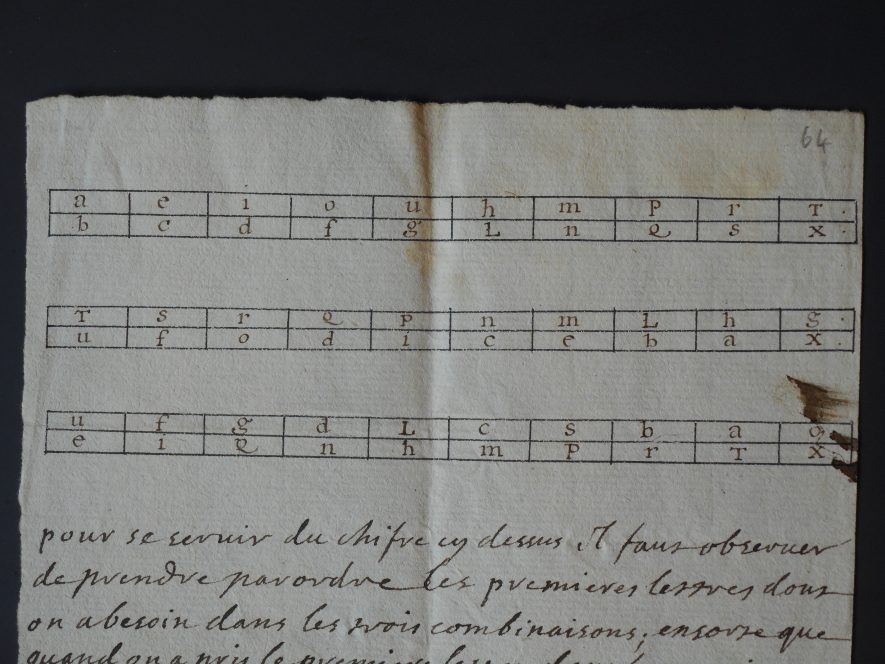 64
a e i o u h m P r T.
b c d f g L n Q s x.
T s r Q P n m L h g.
u f o d i c e b a x.
u f g d L c s b a o
e i Q n h m P r T x
pour se seruir du chifre cy dessus Il faut obseruer
de prendre par ordre les premieres lettres dont
on a besoin dans les trois combinaisons; ensorte que
quand on a pris la premiere